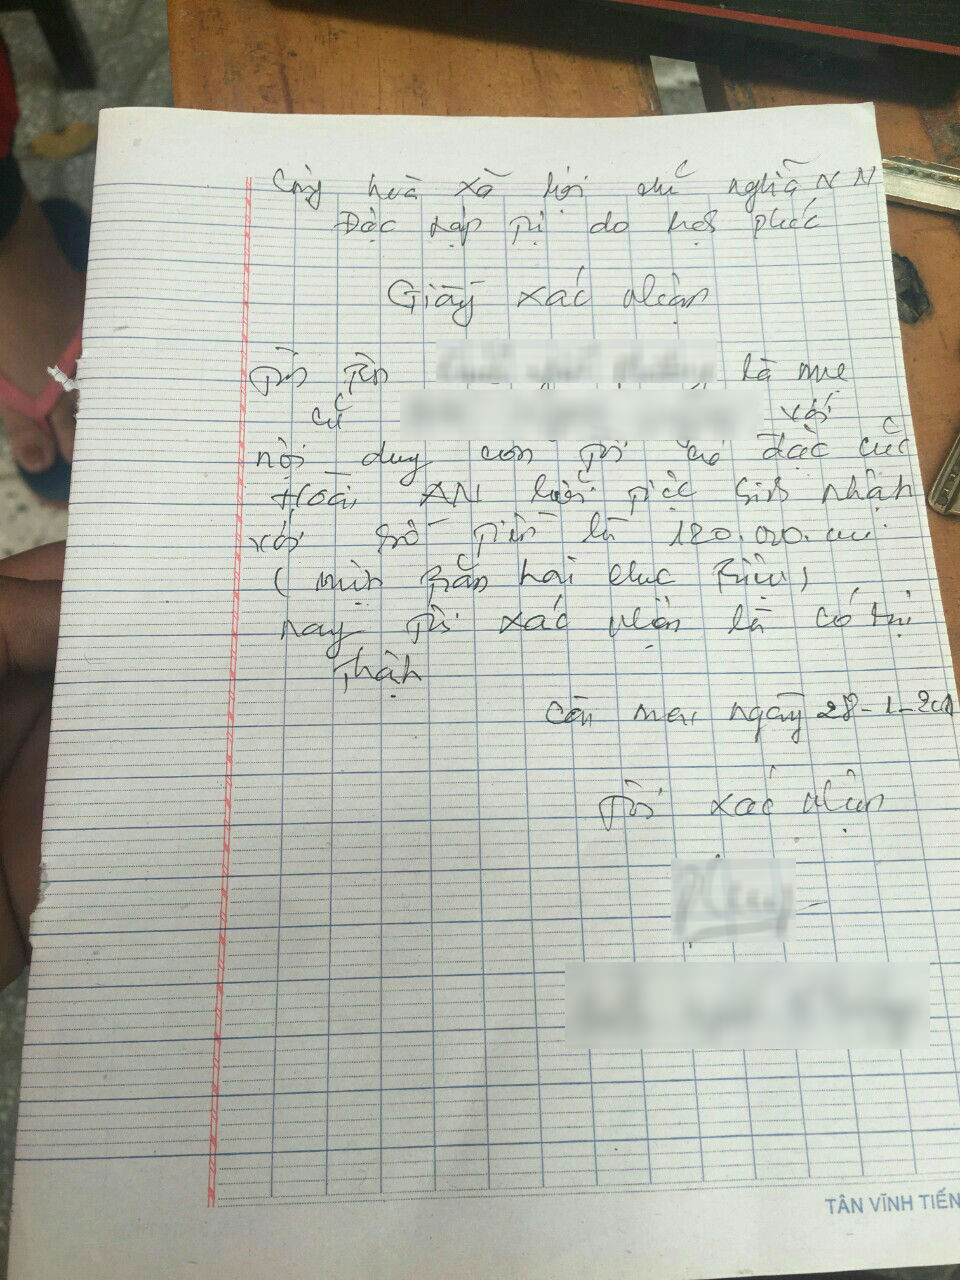 Cộng hoà xã hội chủ nghĩa VN
Độc lập tự do hạ phúc
Giấy xác nhận
Tôi tên là mẹ
củ với
nội dung con tôi có đặc cục
Hoài AN buổi tiệc sinh nhận
với số tiền là 120.000.
(một trăm hai chục triệu)
nay tôi xác nhận là có
thật
ngày 28-1-
Tôi xác nhận
TÂN VĨNH TIẾN